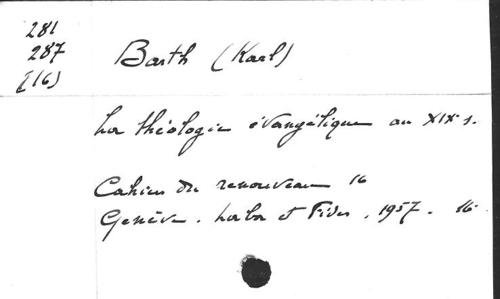 281
287
(16)
Barth (Karl)
La théologie évangélique au XIXe s.
Cahiers du renouveau 16
Genève. Labor et Fides. 1957. 16